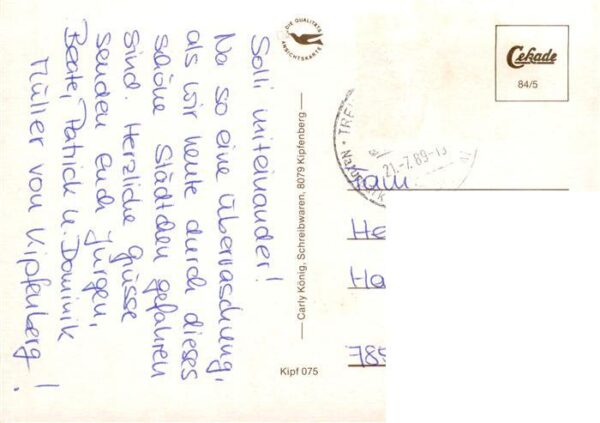 Salli miteinander!
Na so eine Überraschung,
als wir heute durch dieses
schöne Städtchen gefahren
sind. Herzliche Grüsse
senden Euch Jürgen,
Beate, Patrick u. Dominik
Müller von Kipfenberg!
DIE QUALITÄTS
ANSICHTSKARTE
Carly König, Schreibwaren, 8079 Kipfenberg
Kipf 075
Cekade
84/5
21.-7.89-13
Fam
He
Ha
785